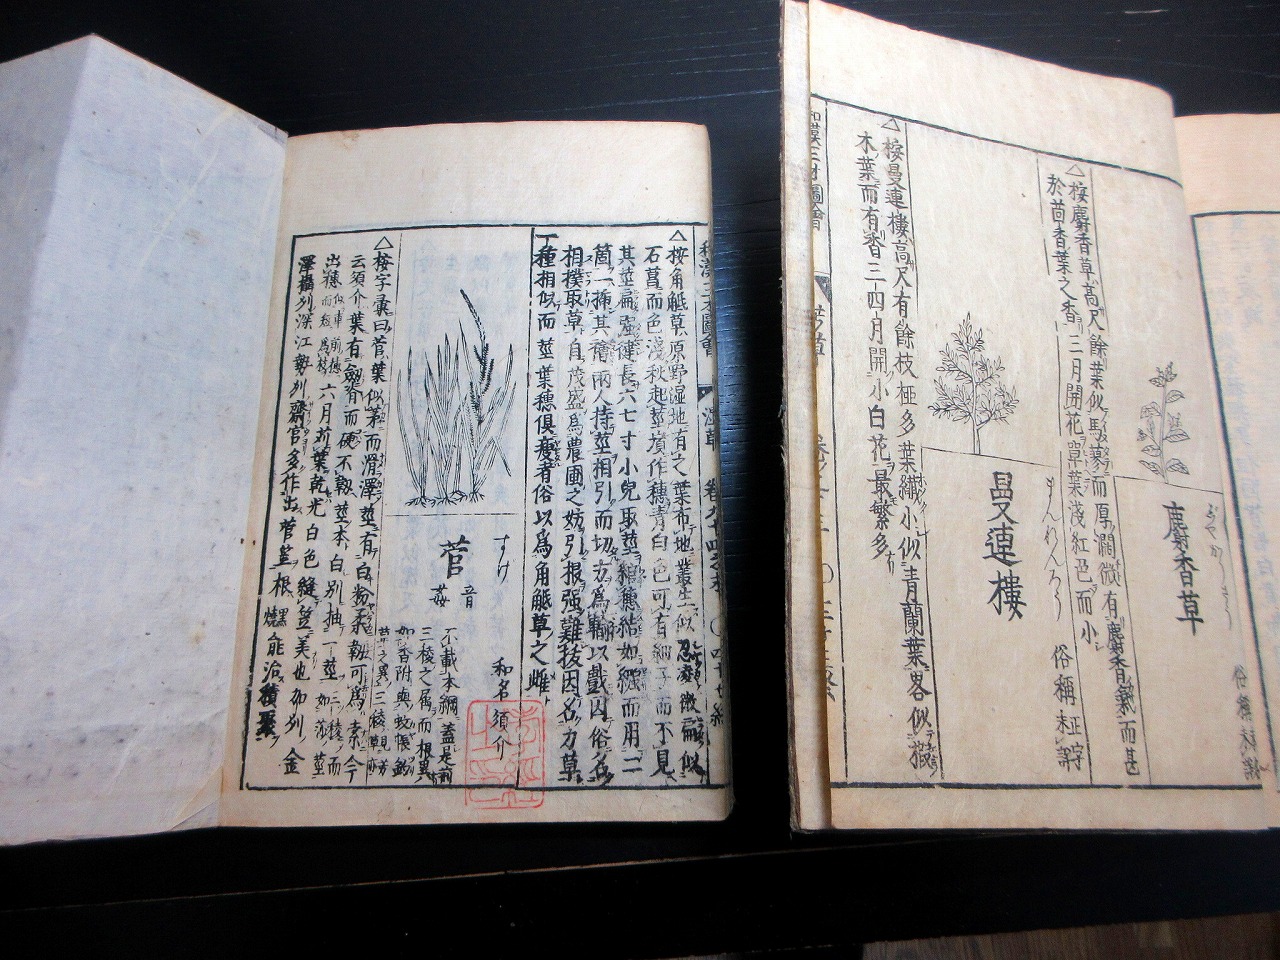 じやかうさう
麝香草
俗稱未詳
△按麝香草高尺餘葉似馬蓼而厚濶微有麝香氣而甚
於茴香葉之香三月開花單葉淺紅色而小
まんれんろう
曼連樓
俗稱 正字未詳
△按曼連樓高尺有餘枝極多葉纖小似青蘭葉畧似
木葉而有香三四月開小白花最繁多
和漢三才圖會
和漢三才圖會 濕草 卷九十四之本
△按角觝草原野湿地有之葉布地叢生似忍凌微扁似
石菖而色淺秋起莖墳作穗青白色可有細子而不見
其莖扁強健長六七寸小兒取莖綰穗結如繩而用二
箇一揷其穭兩人持莖相引而切力爲輸以戲因俗名
相撲取草自茂盛爲農圃之妨引根強難拔因名力草
一種相似而莖葉穗俱痩者俗以爲角觝草之雌
すけ
菅
音姦
和名須介
不載本綱蓋是前
三稜之属而根異
如香附與蚊帳釣
草之異三稜草見芳
△按字彙曰菅葉似茅而滑澤莖有白粉柔韌可爲索今
云須介葉有劔脊而硬不韌莖本白別抽一莖如莎三稜而莖
出穗似車前穗而短爲枝六月苅葉乾光白色縫笠美也加列金
澤攝列深江勢列齋宮多作出菅莖根燒能治積聚